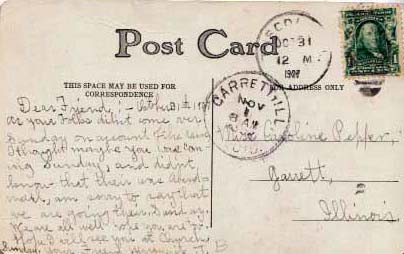 Post Card
THIS SPACE MAY BE USED FOR
CORRESPONDENCE
FOR ADDRESS ONLY
OCT 31
12 M
1907
GARRETT, ILL.
NOV
1
8 AM
Dear Friend:- October 31st
as your Folks didn't come over
Sunday on account of the rain
I thought maybe you was com-
ing Sunday, and didn't
know that there was
am sorry to say that
we are going there Sunday.
We are all well hope you are
Hope I will see you at Church
Sunday your Friend
Miss Caroline Pepper,
Garrett,
Illinois.